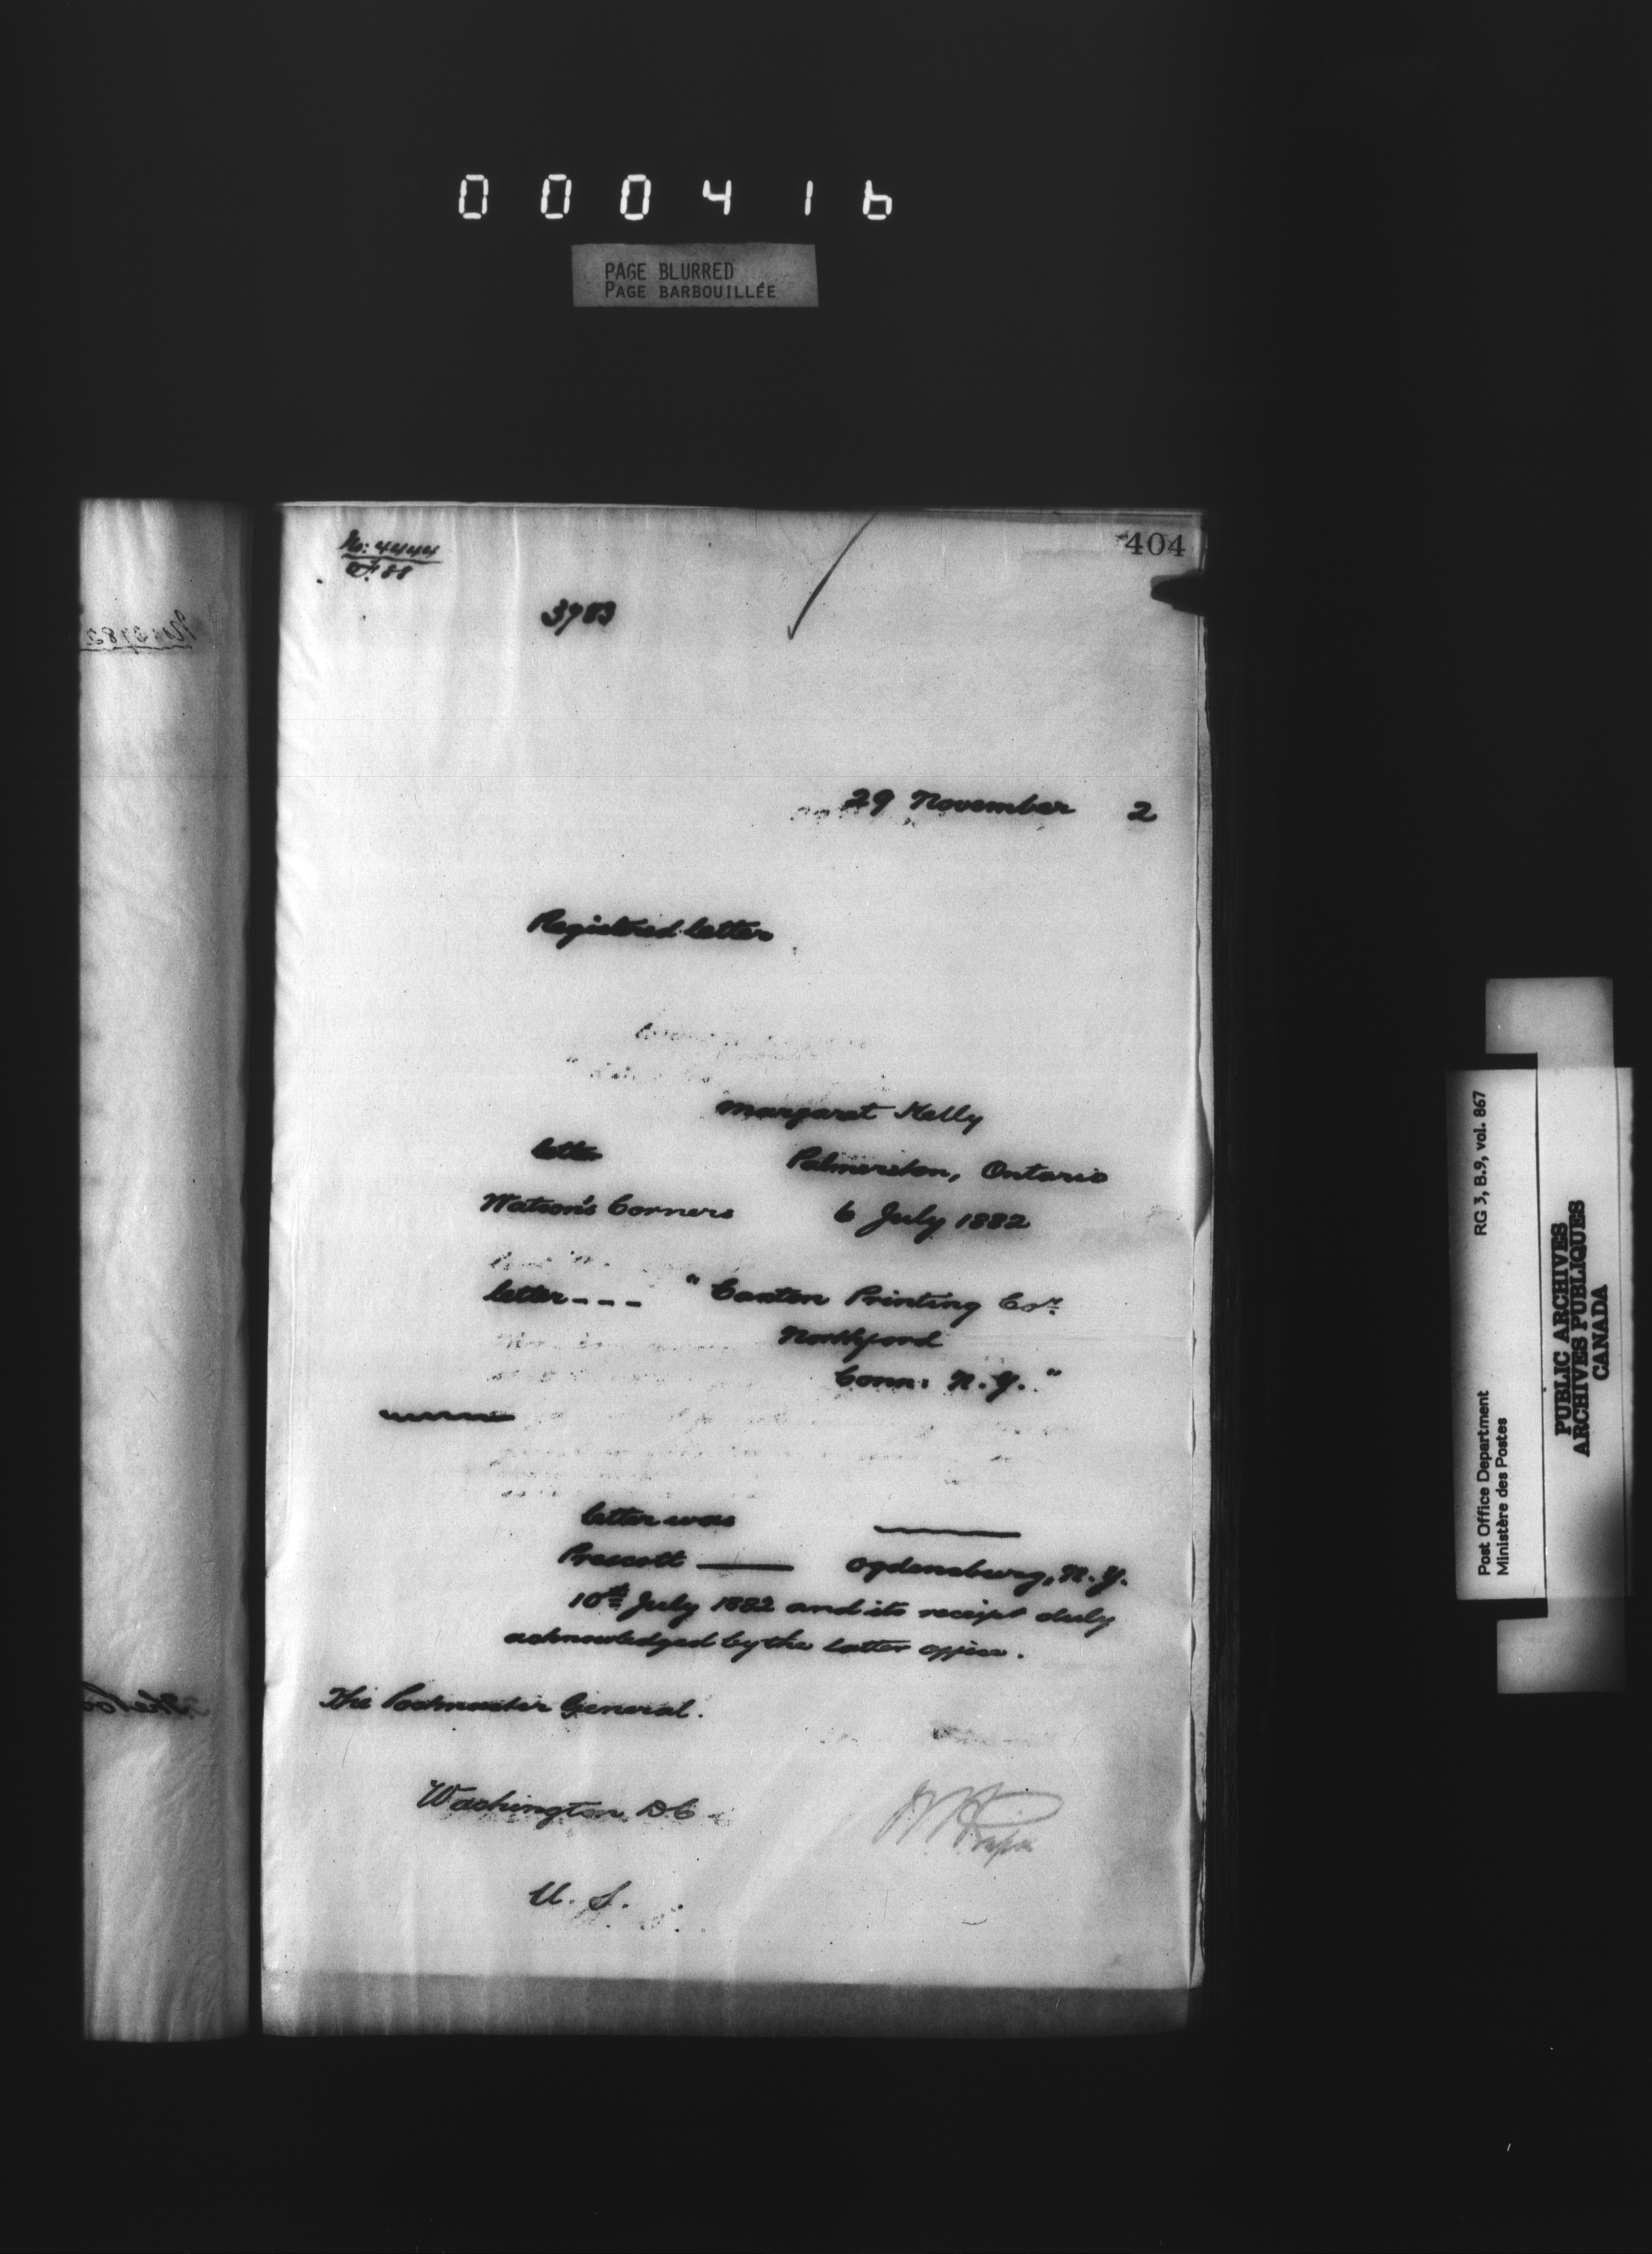 000416
PAGE BLURRED
PAGE BARBOUILLÉE
404
No: 4444
3783
29 November 2
Registered letter
Margaret Kelly
letter Palmerston, Ontario
Watson's Corners 6 July 1882
letter - - - "Caxton Printing Coy.
Northford
Conn: N.Y."
letter was
Prescott —— Ogdensburg, N.Y.
10th July 1882 and its receipt duly
acknowledged by the latter office.
The Postmaster General.
Washington D C
U. S.
RG 3, B.9, vol. 867
Post Office Department
Ministère des Postes
PUBLIC ARCHIVES
ARCHIVES PUBLIQUES
CANADA